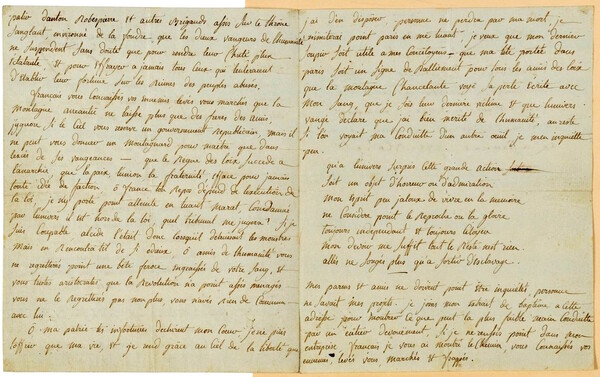 danton Robespierre et autres Brigands assis sur le thrône
Sanglant environné de la foudre, que les dieux vengeurs de l'humanité
ne suspendent sans doute que pour rendre leur Chute plus
Eclatante et pour Effrayer a jamais tous ceux qui tenteraient
d'établir leur fortune sur les Ruines des peuples abusés.
français vous Connaissez vos ennemis levez vous marchez que la
Montagne anéantie ne laisse plus que des frères des amis,
j'ignore si le ciel nous réserve un gouvernement Républicain mais il
ne peut vous donner un Montagnard pour maitre que dans
lexcès de ses vengeances — que le Regne des loix succede a
lanarchie que la paix lunion la fraternité, efface pour jamais
toute idée de faction. ô france ton Repos dépend de lexécution de
la loi, je n'y porte point atteinte en tuant Marat, Condamné
par lunivers il est hors de la loi, quel tribunal me jugera? Si je
suis Coupable alcide l'etait donc lorsquil détruisait les monstres
mais en Rencontra t-il de si odieux, ô amis de l'humanité vous
ne regretterés point une bête féroce engraissée de votre sang, et
vous tristes aristocrates que la Révolution n'a point assés ménagés
vous ne le Regretterés pas non plus vous n'avés rien de Commun
avec lui.
Ô ma patrie tes infortunes déchirent mon coeur je ne puis
toffrir que ma vie, et je rend grâce au ciel de la liberté que
jai den disposer personne ne perdra par ma mort, je
n'imiterai point paris en me tuant, je veux que mon dernier
soupir soit utile a mes concitoyens, que ma tête portée dans
paris soit un signe de Ralliement pour tous les amis des loix
que la montagne Chancelante voye sa perte Ecrite avec
Mon Sang, que je sois leur dernière victime et que lunivers
vangé déclare que jai bien mérité de l'humanité, au reste
Si lon voyait ma Conduite d'un autre oeil je men inquiette
peu.
qu'a lunivers surpris cette grande action
soit un objet d'horreur ou d'admiration
mon esprit peu jaloux de vivre en la mémoire
ne Considère point le Reproche ou la gloire
toujours indépendant et toujours citoïen
Mon devoir me suffit tout le Reste nest rien.
allés ne songés plus qu'a sortir d'esclavage.
Mes parens et amis ne doivent point être inquiétés personne
ne savait mes projets. je joins mon extrait de baptême a cette
adresse pour montrer ce que peut la plus faible main Conduite
par un entier dévouement. Si je ne réussis point dans mon
entreprise français je vous ai montré le Chemin, vous Connaissés vos
ennemis, levés vous Marchés et frapés.